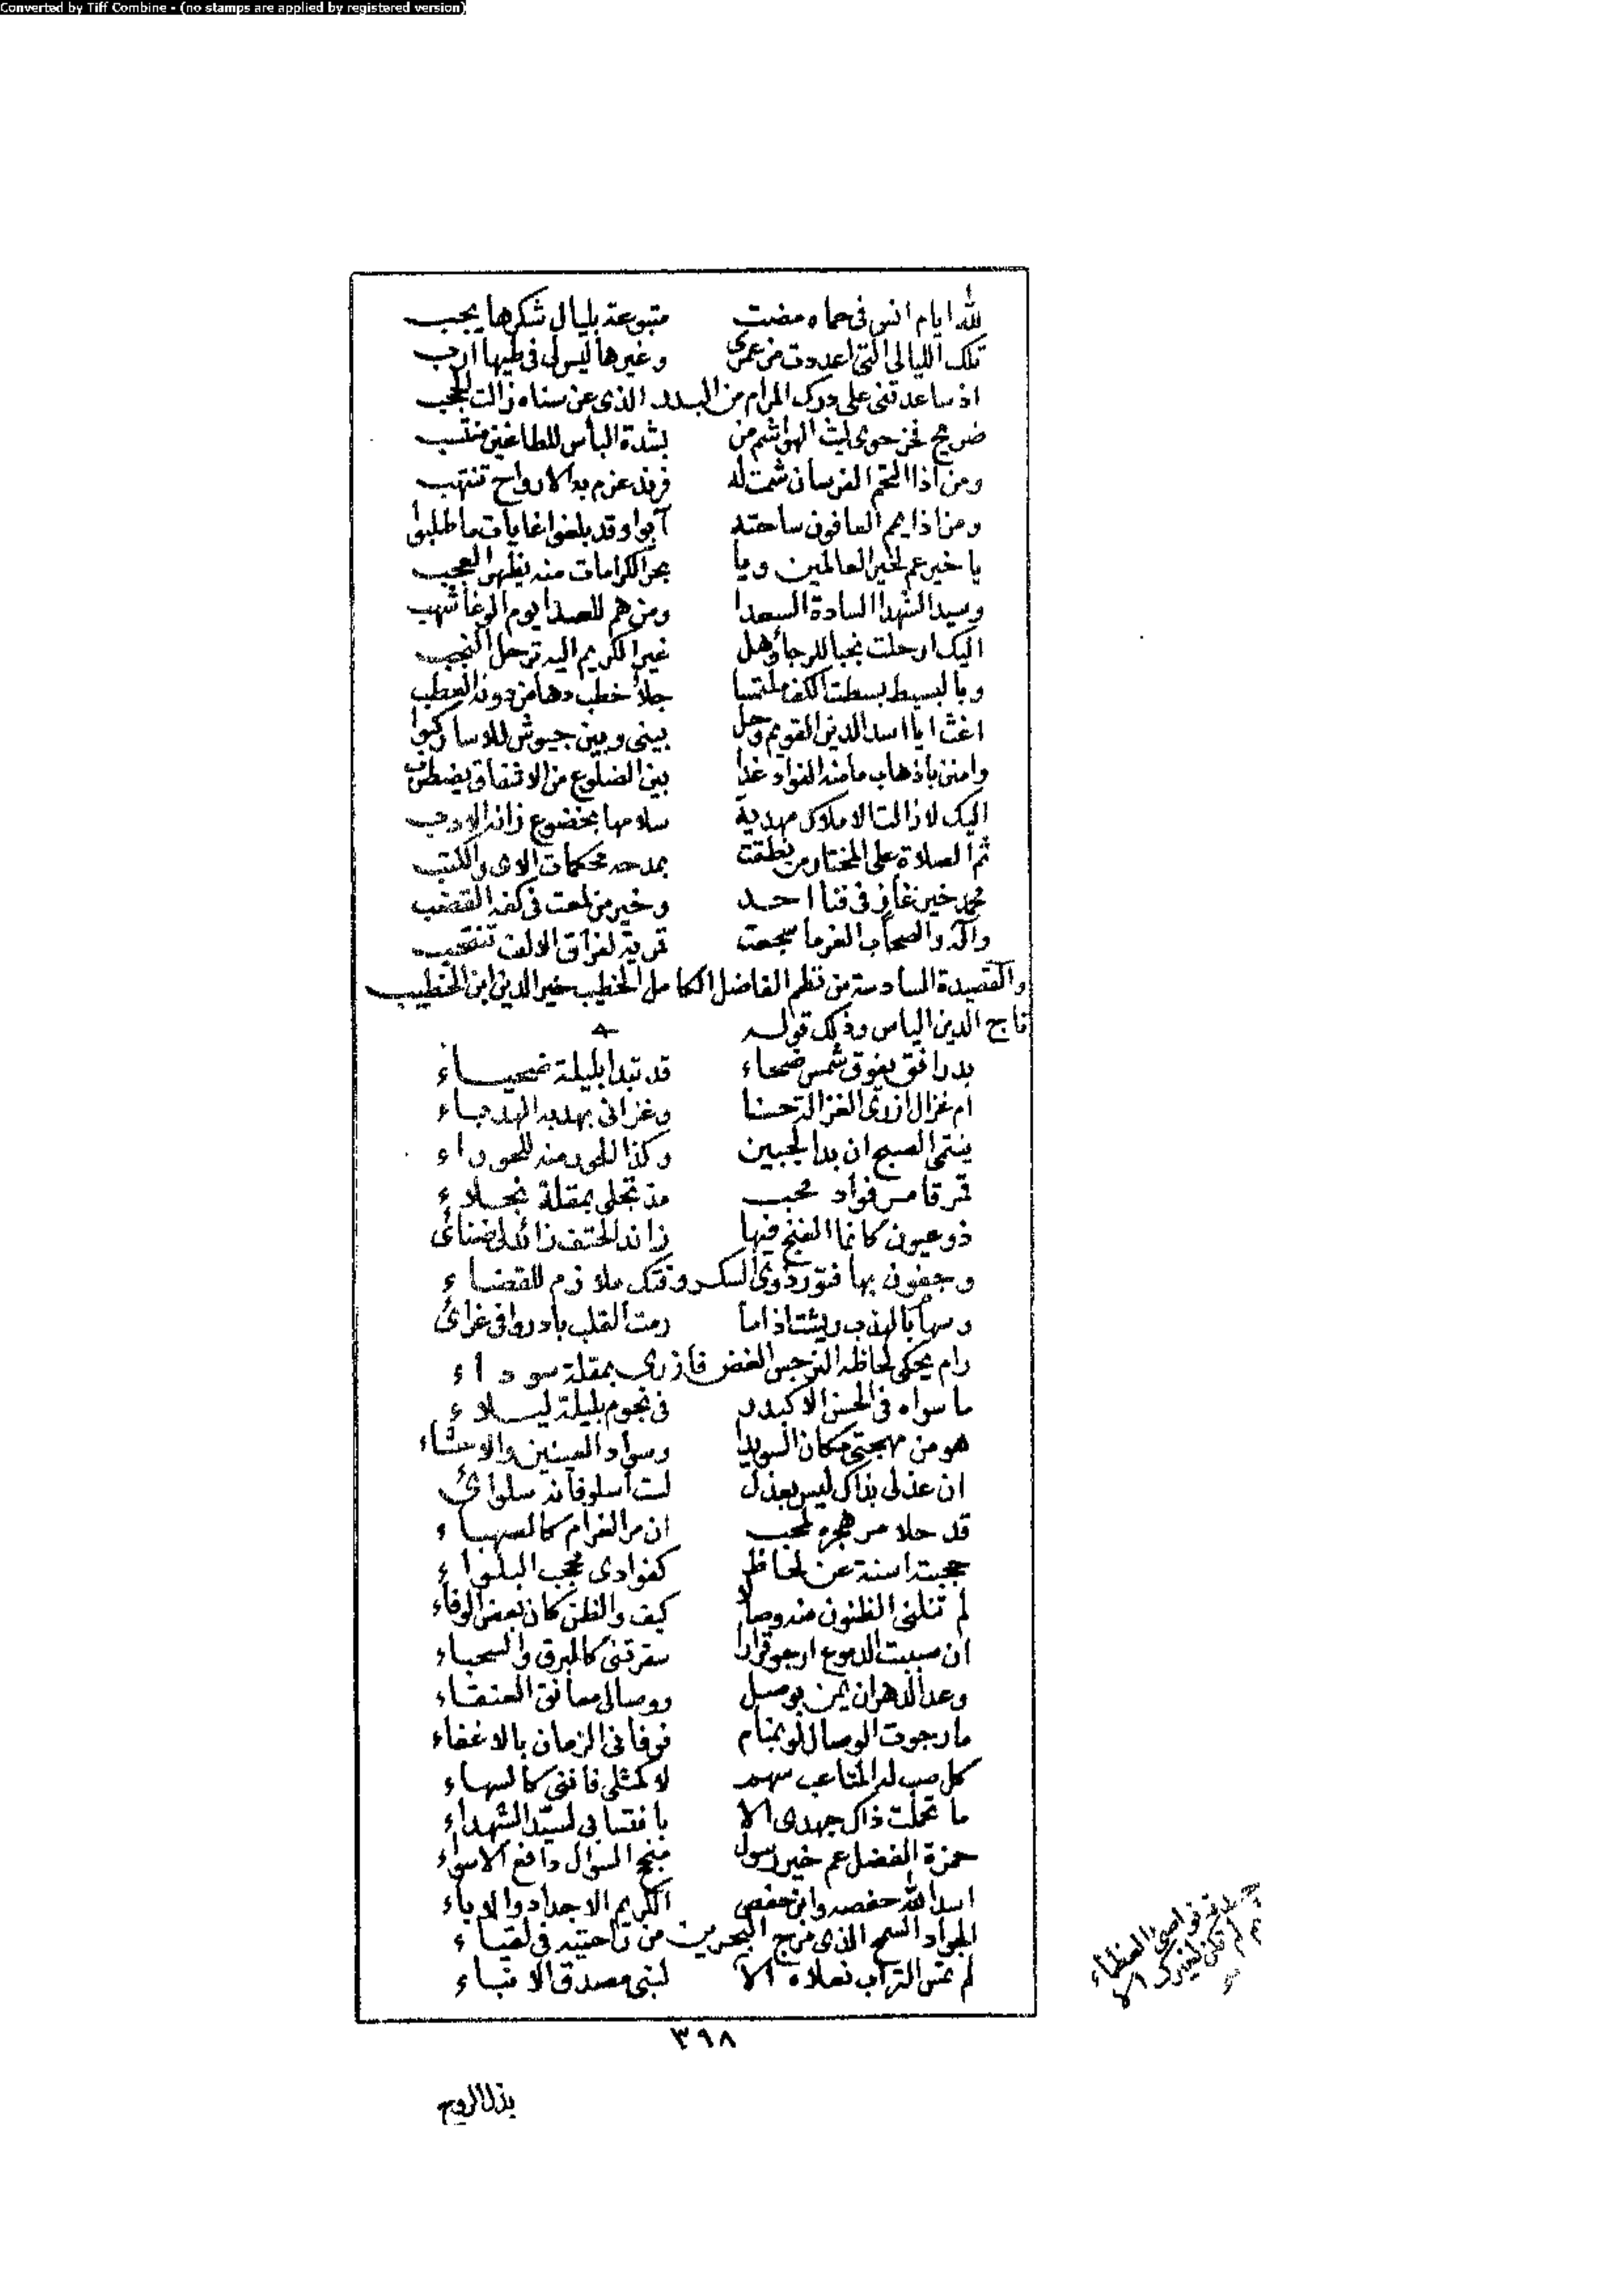 Converted by Tiff Combine - (no stamps are applied by registered version)
لله ايام انس فى حماه مضت متبوعة بليال شكرها يجب
تلك الليالى التى اعددت من عمرى وغيرها ليس لى فى طيها ارب
اذ ساعدتنى على درك المرام من البدر الذى عن سناه زالت الحجب
ضريح فخر حوى ليث الهواشم من بشدة البأس للطاغين منتسب
ومن اذا التحم الفرسان شمت له فرند عزم به الارواح تنتهب
ومن اذا يمم العافون ساحته آبوا وقد بلغوا غايات ما طلبوا
يا خير عم لخير العالمين ويا بحر الكرامات منه يظهر العجب
وسيد الشهدا السادة السعدا ومن هم للعدا يوم الوغا شهب
اليك ارحلت نجبا للرجا وهل غير الكريم اليه ترحل النجب
وبالبسيط بسطت الكف ملتمسا جلاء خطب دها من دونه العطب
اغث ايا اسد الدين القويم وحل بينى وبين جيوش للاسا ركبوا
وامنن باذهاب ما منه الفواد غدا بين الضلوع من الاشفاق يضطرب
اليك لا زالت الاملاك مهدية سلامها بخضوع زانه الادب
ثم الصلاة على المختار من نطقت بمدحه محكمات الاى والكتب
محمد خير غاز فى فنا احد وخير من لمعت فى كفه القضب
وآله والصحاب الغر ما سجعت قمرية لفراق الالف تنتحب
والقصيدة السادسة من نظم الفاضل الكامل الخطيب خير الدين ابن الخطيب
تاج الدين الياس وذلك قوله
بدر افق يفوق شمس ضحاء قد تبدا بليلة ضحياء
ام غزال ازرى الغزالة حسنا وغزانى بهدبه الهدباء
ينتمى الصبح ان بدا لجبين وكذا للحور منه للحوراء
قمر قامر فواد محب مذ تجلى بمقلة نجلاء
ذو عيون كانما الغنج فيها زاند الحتف زائد لضنائى
وجفون بها فتور ذوى السكر وفتك ملازم للقضاء
وسهام بالهدب ريشت اذا ما رمت القلب بادروا فى غرائى
رام يحكى لحاظه النرجس الغض فازرى بمقلة سوداء
ما سواه فى الحسن الا كبدر فى نجوم بليلة ليلاء
هو من مهجتى مكان السويدا وسواد العينين والاحشاء
ان عذلى بذاك ليس بعذل لست اسلو فانه سلوائى
قد حلا مر هجره لمحب ان مر الغرام كالصهباء
حجبته اسنة عن لحاظى كفوادى محجب البلواء
لم تنلنى الظنون منه وصالا كيف والظن كان بعض الوفاء
ان صببت الدموع ارجو قرارا سقرتنى كالبرق والسحباء
وعد الدهر ان يمن بوصل ووصالى معانق العنقاء
ما رجوت الوصال لو بمنام فوفانى الزمان بالاغفاء
كل صب له المتاعب سهد لا كمثلى فاننى كالسهاء
ما تحملت ذاك جهدى الا بانتسابى لسيد الشهداء
حمزة الفضل عم خير رسول منجح السؤال دافع الاسواء
اسد الله حفصه وابن حفص الكريم الاجداد والاباء
الجواد السمح الذى مرج البحرين من راحتيه فى لقياء
لم تمس التراب نعلاه الا لنبى مصدق الانباء
٣٩٨
بذل الروح